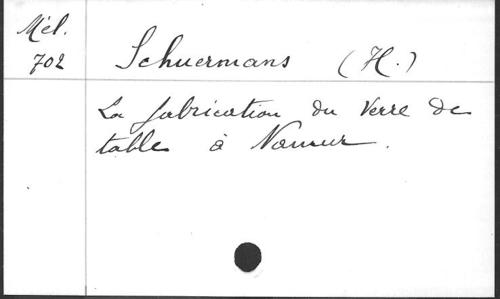 Mél.
702
Schuermans (H.)
La fabrication du verre de
table à Namur.